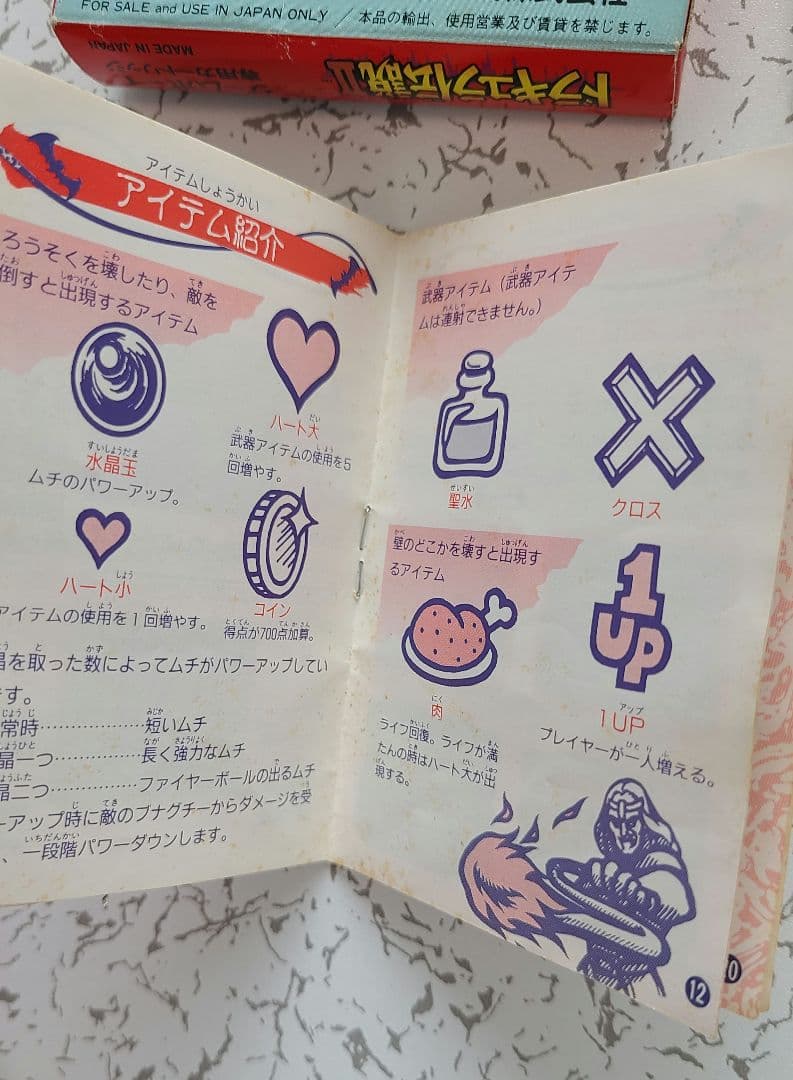 FOR SALE and USE IN JAPAN ONLY ／本品の輸出、使用営業及び賃貸を禁じます。
MADE IN JAPAN
ドラキュラ伝説II
アイテムしょうかい
アイテム紹介
ろうそくを壊したり、敵を
倒すと出現するアイテム
すいしょうだま
水晶玉
ムチのパワーアップ。
ハート大
武器アイテムの使用を5
回増やす。
ハート小
アイテムの使用を1回増やす。
コイン
得点が700点加算。
晶を取った数によってムチがパワーアップしてい
す。
常時………………短いムチ
晶一つ……………長く強力なムチ
晶二つ……………ファイヤーボールの出るムチ
ーアップ時に敵のブナグチーからダメージを受
、一段階パワーダウンします。
武器アイテム（武器アイテ
ムは連射できません。）
せいすい
聖水
クロス
壁のどこかを壊すと出現す
るアイテム
にく
肉
ライフ回復。ライフが満
たんの時はハート大が出
現する。
1UP
アップ
1UP
プレイヤーが一人増える。
12